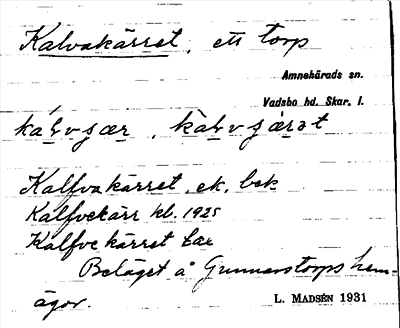 Kalvakärret, ett torp
Amnehärads sn.
Vadsbo hd. Skar. l.
Kalfvakärret, ek, bek
Kalfvekärr kb. 1925
Kalfvekärret
Beläget å Gunnarstorps hem-
ägor.
L. MADSÉN 1931